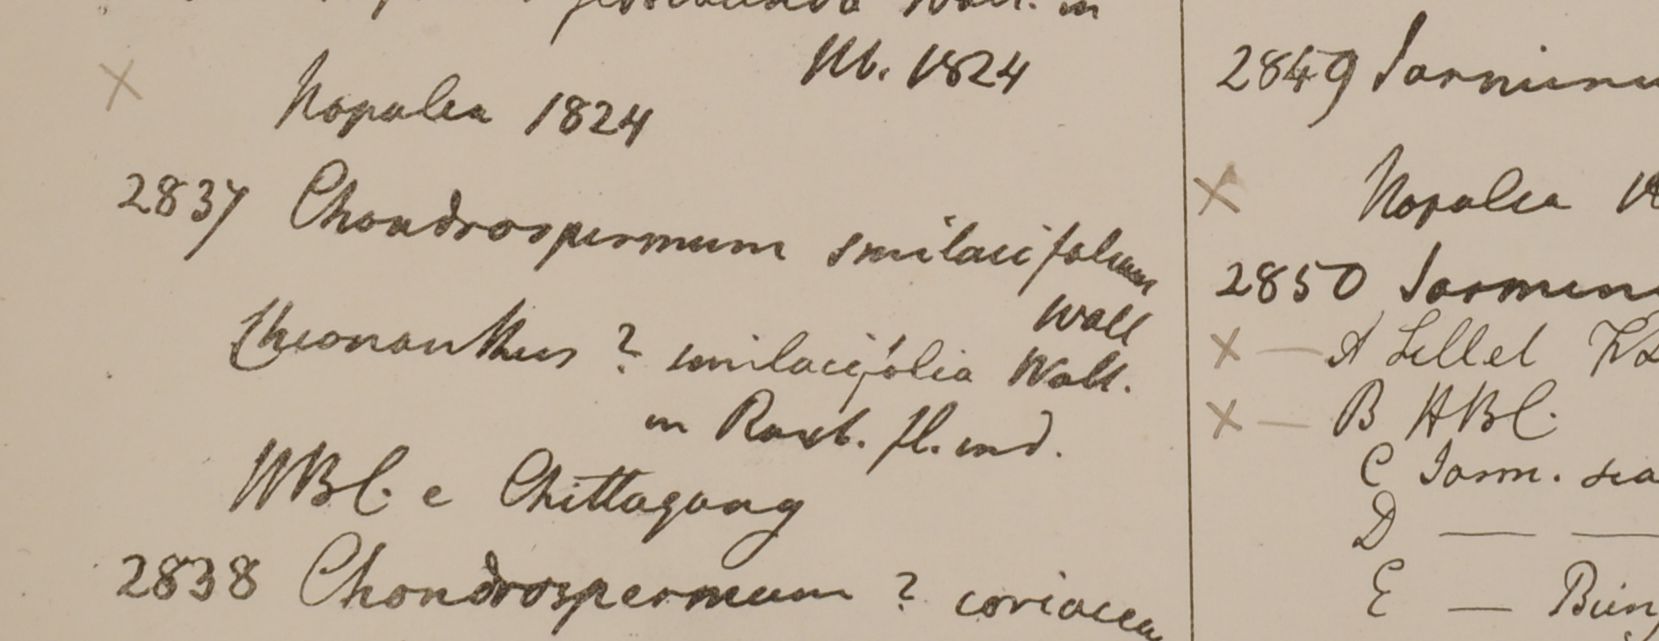 Wall. in
Hb. 1824
Napalia 1824
2837 Chondrospermum smilacifolium
Wall
Chionanthus ? smilacifolia Wall.
in Roxb. fl. ind.
HBC. e Chittagong
2838 Chondrospermum ? coriaceu
2849 Jasminu
Napalia 18
2850 Jasminu
A Sillet
B HBC.
C Jasm.
D — —
E —